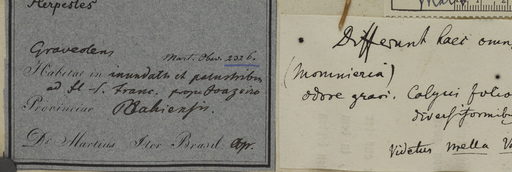 Herpestes
Graveolens
Mart. Obs. 2326.
Habitat in inundatis et palustribus
ad fl. S. Franc. prope Joazeiro
Provinciae Bahiensis.
Dr Martius Iter Brasil. Apr.
Differunt haec omn
(Monnieria)
odore gravi. Calyci folio
diversiformibu
Videtur mella V